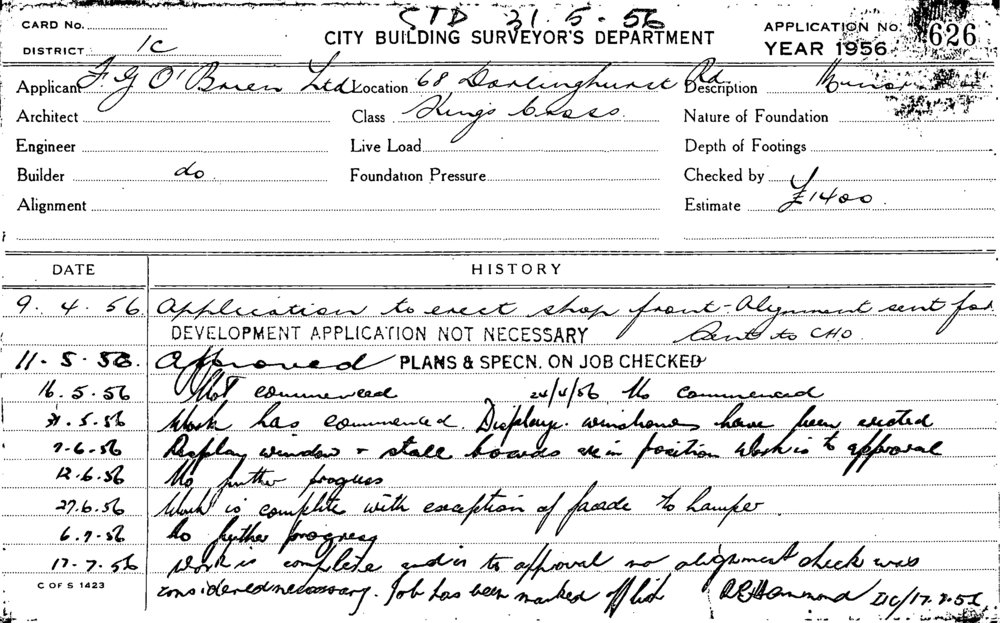 STD 31.5.56
CARD No.
CITY BUILDING SURVEYOR'S DEPARTMENT
APPLICATION No. 626
DISTRICT 1C
YEAR 1956
Applicant F G O'Brien Ltd Location 68 Darlinghurst Rd Description Minor
Architect Class Kings Cross Nature of Foundation
Engineer Live Load Depth of Footings
Builder do Foundation Pressure Checked by
Alignment Estimate £1400
DATE HISTORY
9. 4. 56 Application to erect shop front - Alignment sent for
DEVELOPMENT APPLICATION NOT NECESSARY Sent to CHO
11. 5. 56. Approved PLANS & SPECN. ON JOB CHECKED
16.5.56 Not commenced 24/4/56 No commenced
31.5.56 Work has commenced. Display have been erected
7.6.56 Display window & stall boards are in position Work is to approval
12.6.56 No further progress
27.6.56 Work is complete with exception of facade to hamper
6.7.56 No further progress
17.7.56 Work is complete and is to approval no alignment check was
C OF S 1423
considered necessary. Job has been marked off list REHammond 17.7.56